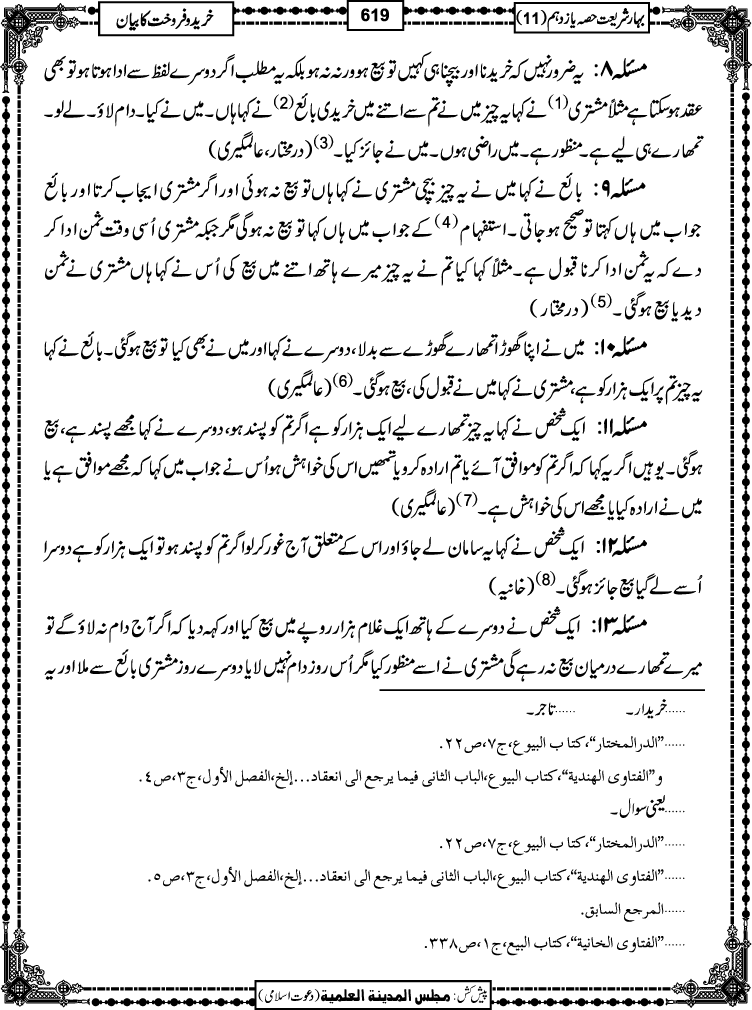 بہارِ شریعت حصہ یازدہم (11)
619
خرید و فروخت کا بیان
مسئلہ ۸: یہ ضرور نہیں کہ خریدنا اور بیچنا ہی کہیں تو بیع ہو ورنہ نہ ہو بلکہ یہ مطلب اگر دوسرے لفظ سے ادا ہوتا ہو تو بھی
عقد ہوسکتا ہے مثلاً مشتری (1) نے کہا یہ چیز میں نے تم سے اتنے میں خریدی بائع (2) نے کہا ہاں۔ میں نے کیا۔ دام لاؤ۔ لے لو۔
تمھارے ہی لیے ہے۔ منظور ہے۔ میں راضی ہوں۔ میں نے جائز کیا۔ (3) (درمختار، عالمگیری)
مسئلہ ۹: بائع نے کہا میں نے یہ چیز بیچی مشتری نے کہا ہاں تو بیع نہ ہوئی اور اگر مشتری ایجاب کرتا اور بائع
جواب میں ہاں کہتا تو صحیح ہو جاتی۔ استفہام (4) کے جواب میں ہاں کہا تو بیع نہ ہوگی مگر جبکہ مشتری اُسی وقت ثمن ادا کر
دے کہ یہ ثمن ادا کرنا قبول ہے۔ مثلاً کہا کیا تم نے یہ چیز میرے ہاتھ اتنے میں بیع کی اُس نے کہا ہاں مشتری نے ثمن
دیدیا بیع ہوگئی۔ (5) (درمختار)
مسئلہ ۱۰: میں نے اپنا گھوڑا تمھارے گھوڑے سے بدلا، دوسرے نے کہا اور میں نے بھی کیا تو بیع ہوگئی۔ بائع نے کہا
یہ چیز تم پر ایک ہزار کو ہے، مشتری نے کہا میں نے قبول کی، بیع ہوگئی۔ (6) (عالمگیری)
مسئلہ ۱۱: ایک شخص نے کہا یہ چیز تمھارے لیے ایک ہزار کو ہے اگر تم کو پسند ہو، دوسرے نے کہا مجھے پسند ہے، بیع
ہوگئی۔ یوہیں اگر یہ کہا کہ اگر تم کو موافق آئے یا تم ارادہ کرو یا تمھیں اس کی خواہش ہو اُس نے جواب میں کہا کہ مجھے موافق ہے یا
میں نے ارادہ کیا یا مجھے اس کی خواہش ہے۔ (7) (عالمگیری)
مسئلہ ۱۲: ایک شخص نے کہا یہ سامان لے جاؤ اور اس کے متعلق آج غور کرلو اگر تم کو پسند ہو تو ایک ہزار کو ہے دوسرا
اُسے لے گیا بیع جائز ہوگئی۔ (8) (خانیہ)
مسئلہ ۱۳: ایک شخص نے دوسرے کے ہاتھ ایک غلام ہزار روپے میں بیع کیا اور کہہ دیا کہ اگر آج دام نہ لاؤ گے تو
میرے تمھارے درمیان بیع نہ رہے گی مشتری نے اسے منظور کیا مگر اُس روز دام نہیں لایا دوسرے روز مشتری بائع سے ملا اور یہ
......خریدار۔ ......تاجر۔
......”الدرالمختار“، کتاب البیوع، ج۷، ص۲۲.
و”الفتاوی الهندیة“، کتاب البیوع، الباب الثانی فیما یرجع الی انعقاد...إلخ، الفصل الأول، ج۳، ص٤.
......یعنی سوال۔
......”الدرالمختار“، کتاب البیوع، ج۷، ص۲۲.
......”الفتاوی الهندیة“، کتاب البیوع، الباب الثانی فیما یرجع الی انعقاد...إلخ، الفصل الأول، ج۳، ص٥.
......المرجع السابق.
......”الفتاوی الخانیة“، کتاب البیع، ج۱، ص۳۳۸.
پیش کش: مجلس المدینة العلمیة (دعوت اسلامی)